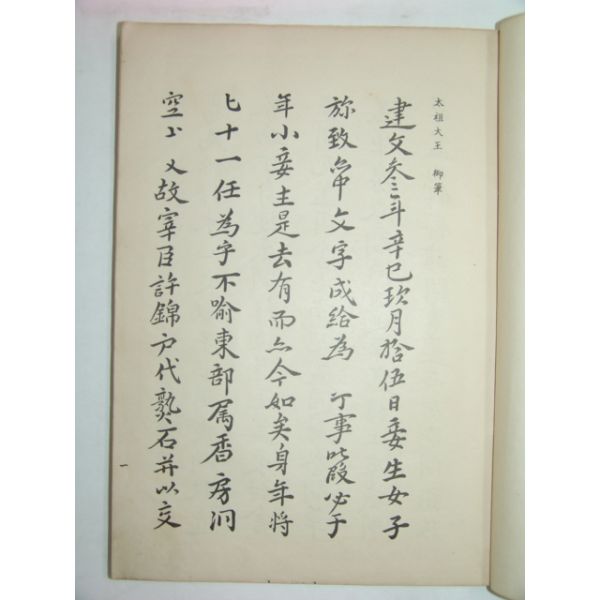 太祖大王 御筆
建文叄年辛巳玖月拾伍日妾生女子
旀致 亦中 文字成給為 臥乎事叱段必于
年小妾主是去有而亦今如矣身年將
七十一任為乎不喻東部屬香房洞
空代 又故宰臣許錦戶代熟石幷以交
一